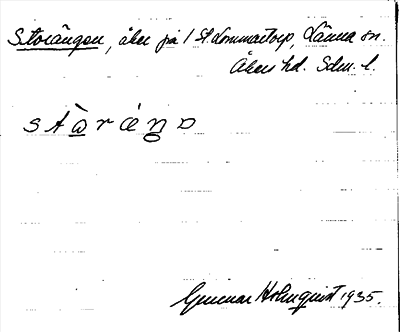 Storängen, åker på 1 St. Lommartorp, Länna sn.
Åkers hd. Sdm. l.
stὰręŋɒ
Gunnar Holmquist 1935.